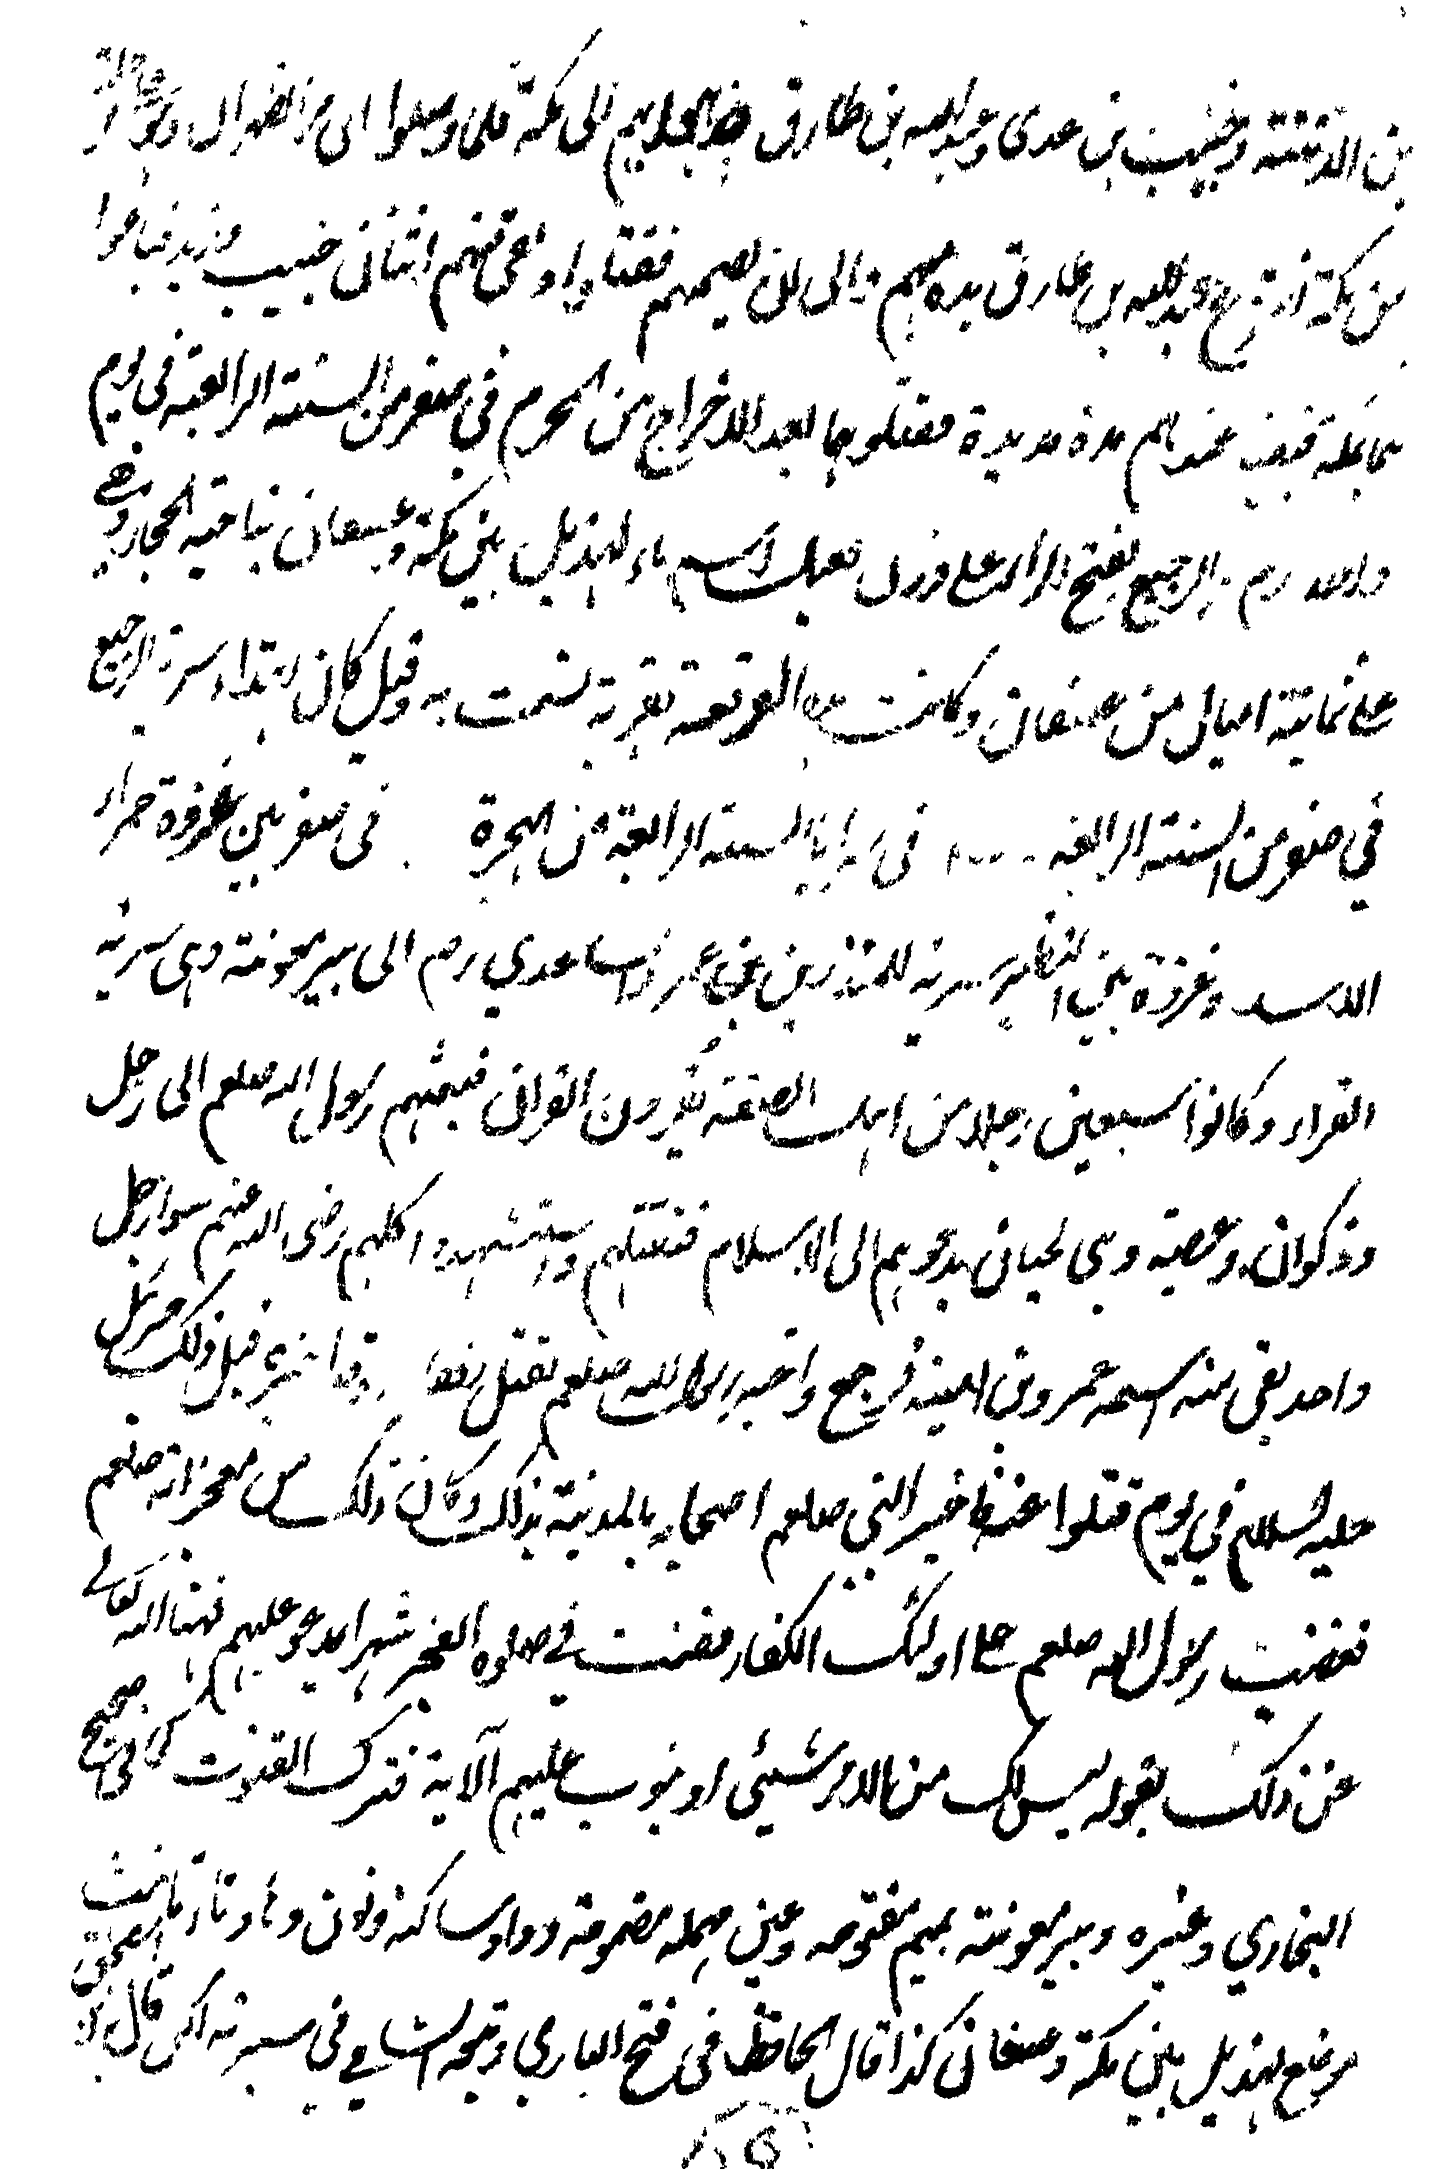 بن الدثنة وخبيب بن عدى وعبد الله بن طارق الى مكة فلما وصلوا الى مر الظهران
من مكة انتزع عبد الله بن طارق يده منهم وابى ان يصحبهم فقتلوه وبقى منهم اثنان خبيب وزيد فباعوا
هما بمكة فبقيا عندهم مدة مديدة فقتلوهما بعد الاخراج من الحرم في صفر من السنة الرابعة في يوم
واحد رم والرجيع بفتح الراء على وزن فعيل اسم ماء لهذيل بين مكة وعسفان بناحية الحجاز
على ثمانية اميال من عسفان وكانت هذه الوقعة بقربه فسميت به وقيل كان ابتداء سرية الرجيع
في صفر من السنة الرابعة في سرايا السنة الرابعة من الهجرة في صفر بين غزوة حمراء
الاسد وغزوة بني النضير سرية المنذر بن عمرو الساعدي رم الى بير معونة وهى سرية
القراء وكانوا سبعين رجلا من اهل الصفة يقرون القران فبعثهم رسول الله صلعم الى رعل
وذكوان وعصية وبنى لحيان يدعوهم الى الاسلام فقتلهم واستشهدوا كلهم رضى الله عنهم سوا رجل
واحد بقى منه اسمه عمرو بن امية فرجع واخبر رسول الله صلعم بقتل رفقا قبل ذلك جبرئيل
عليه السلام في يوم قتلوا عنه فاخبر النبي صلعم اصحابه بالمدينة بذلك وكان ذلك من معجزاته صلعم
فغضب رسول الله صلعم على اولئك الكفار فقنت في صلوة الفجر شهرا يدعو عليهم فنهاه الله تعالى
عن ذلك بقوله ليس لك من الامر شيئى او يتوب عليهم الآية فترك القنوت كما في صحيح
البخاري وغيره وبير معونة بميم مفتوحه وعين مهمله مضمومة وواو ساكنه ونون وها وتاء تانيث
موضع لهذيل بين مكة وعسفان كذا قال الحافظ في فتح الباري وتبعه الشامي في سيرته لكن قال